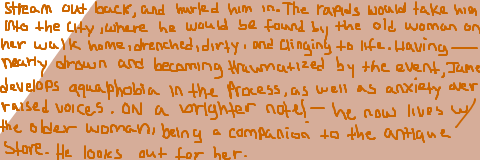 Stream out back, and hurled him in. The rapids would take him
into the city, where he would be found by the old woman on
her walk home, drenched, dirty, and clinging to life. Having —
nearly drown and becoming thaumatized by the event, June
develops aquaphobia in the process, as well as anxiety over
raised voices. On a brighter note! — he now lives w/
the older woman, being a companion to the antique
Store. He looks out for her.